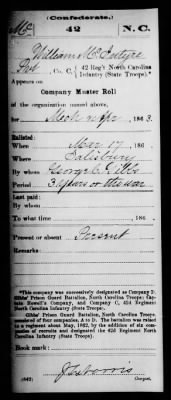 (Confederate.)
Mc 42 N.C.
William McEntyre
Pvt, Co. C, 42 Reg't North Carolina
Infantry (State Troops).*
Appears on
Company Muster Roll
of the organization named above,
for 186 3.
Enlisted:
When Mar 17 186 .
Where Salisbury
By George C. Gibbs
Period 3 years or the war
Last paid:
By
To what time 186 .
Present or absent Present
Remarks:
*This company was successively designated as Company 2,
Gibbs' Prison Guard Battalion, North Carolina Troops; Captain
Howell's Company, and Company C, 42d Regiment
North Carolina Infantry (State Troops).
Gibbs' Prison Guard Battalion, North Carolina Troops,
consisted of four companies, A to D. The battalion was raised
to a regiment about May, 1862, by the addition of six companies
of recruits and designated the 42d Regiment North
Carolina Infantry (State Troops).
Book mark:
(642) Copyist.